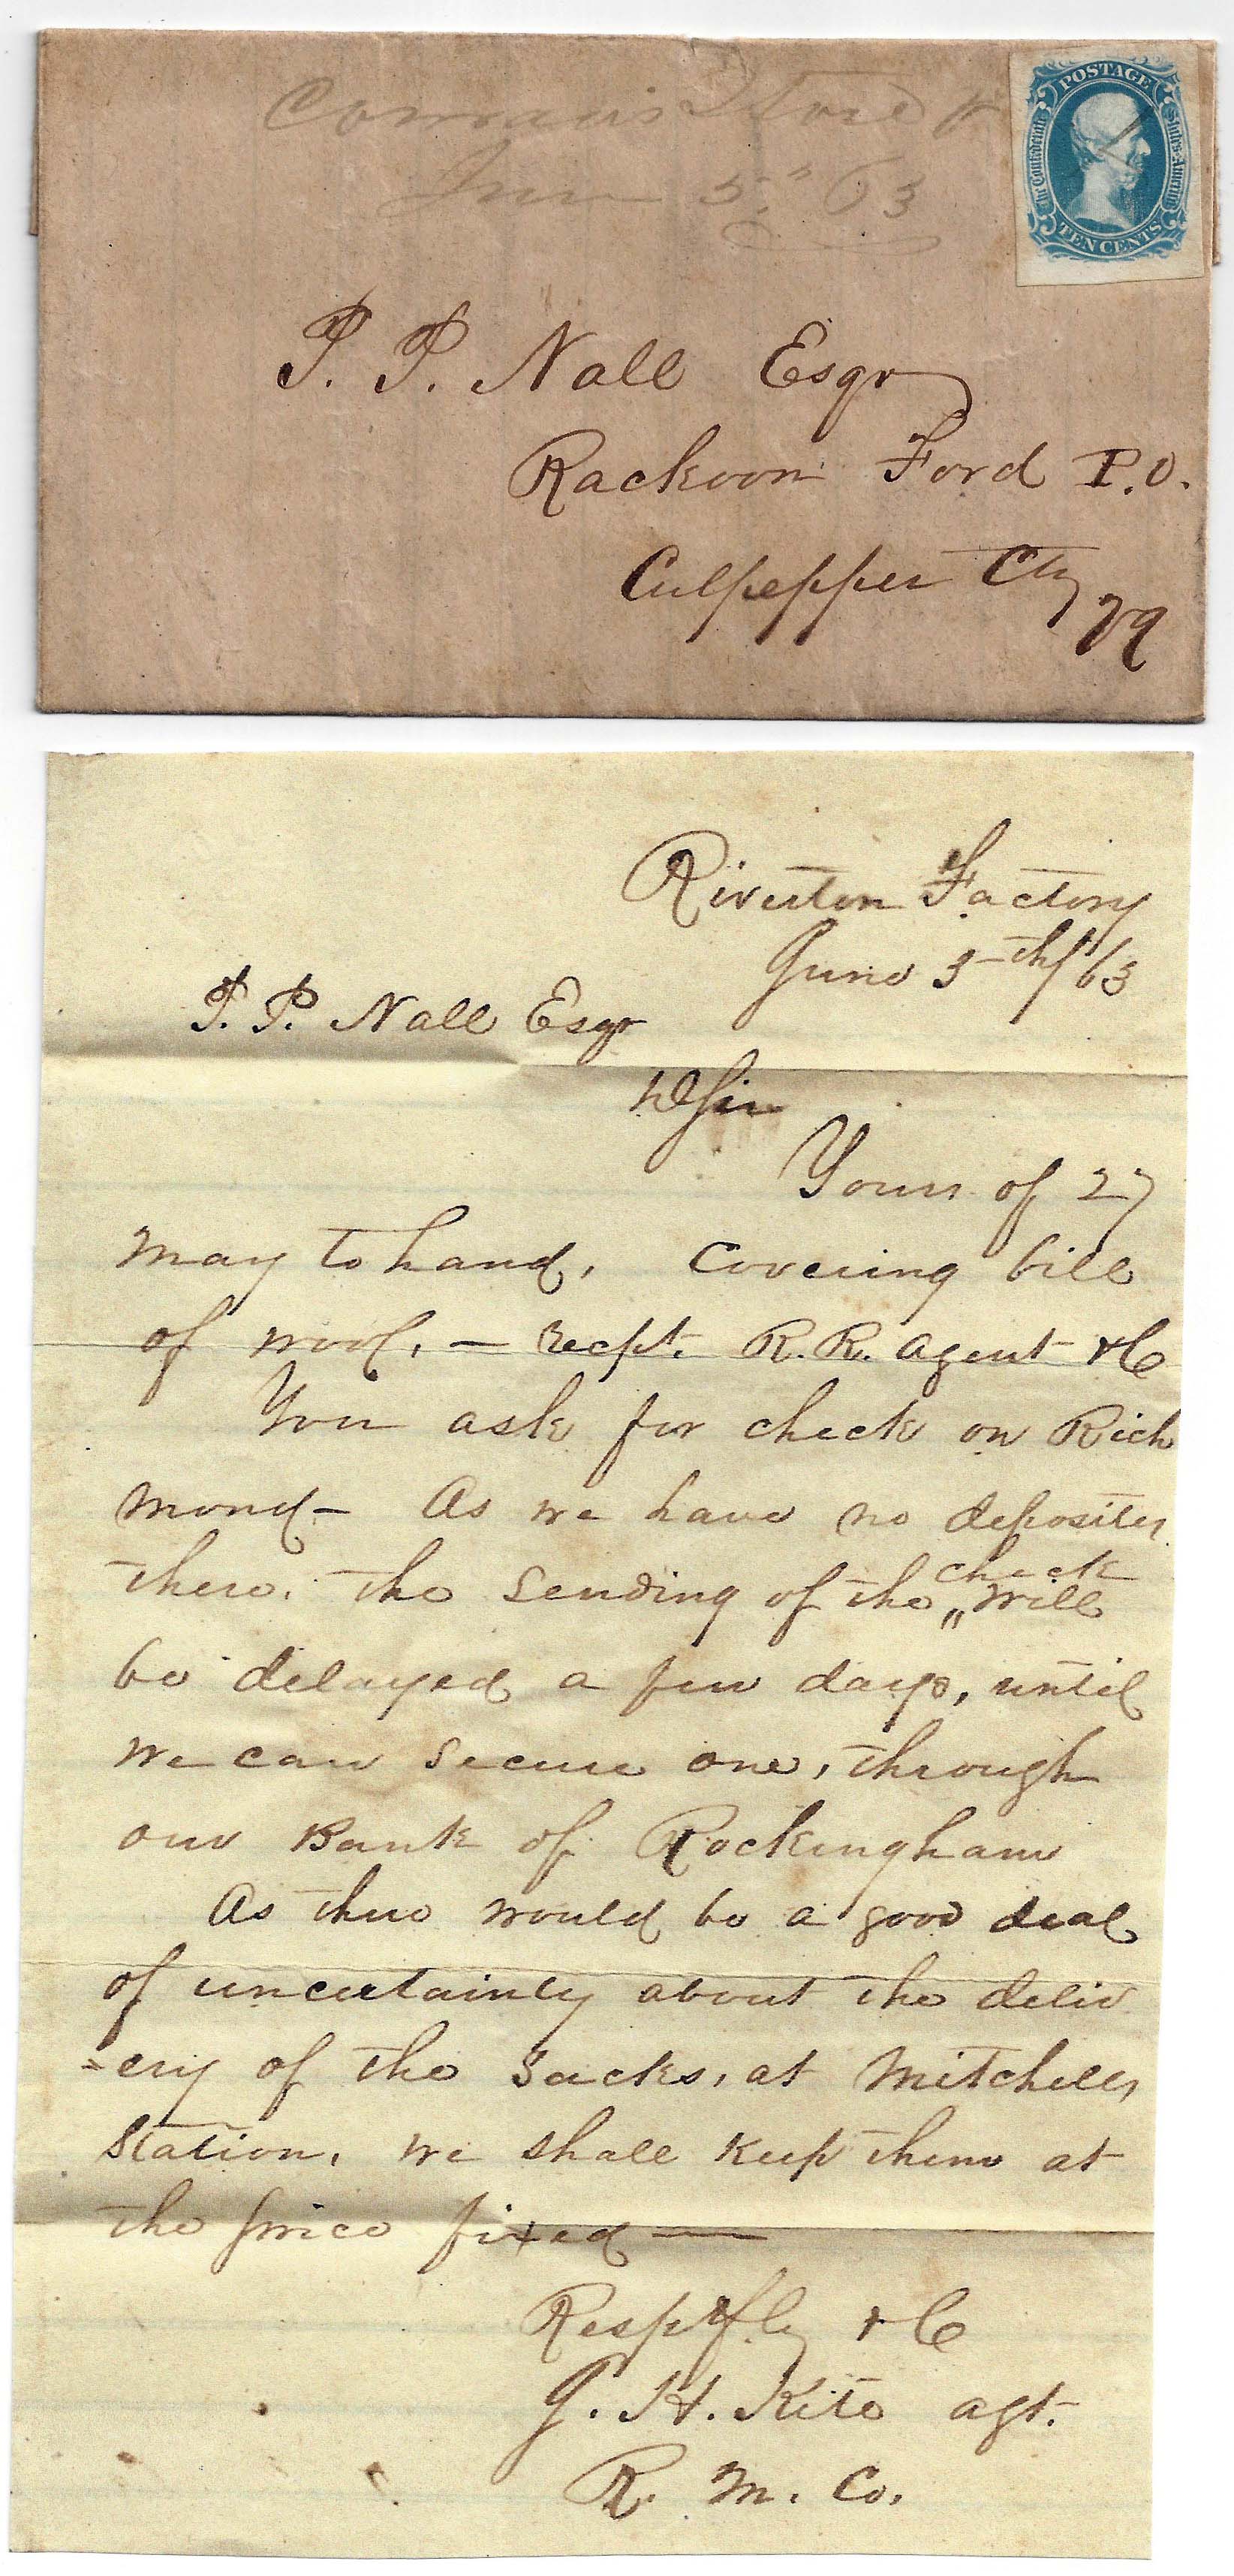 Conrad's Store V
June 5" 63
POSTAGE
The Confederate States of America
TEN CENTS
P. P. Nall Esqr
Rackoon Ford P.O.
Culpepper Cty
Va
Riverton Factory
June 5th/63
P. P. Nall Esqr
D Sir
Yours of 27
May to hand, Covering bill
of wool, — recpt. R.R. agent &C
You ask for check on Rich
mond — As we have no deposites
there. the sending of the check „ will
be delayed a few days, until
we can secure one, through
our Bank of Rockingham
As there would be a good deal
of uncertainty about the deliv
=ery of the Sacks, at Mitchells
Station, we shall keep them at
the price fixed —
Respfly &C
G. H. Kite agt.
R. M. Co.